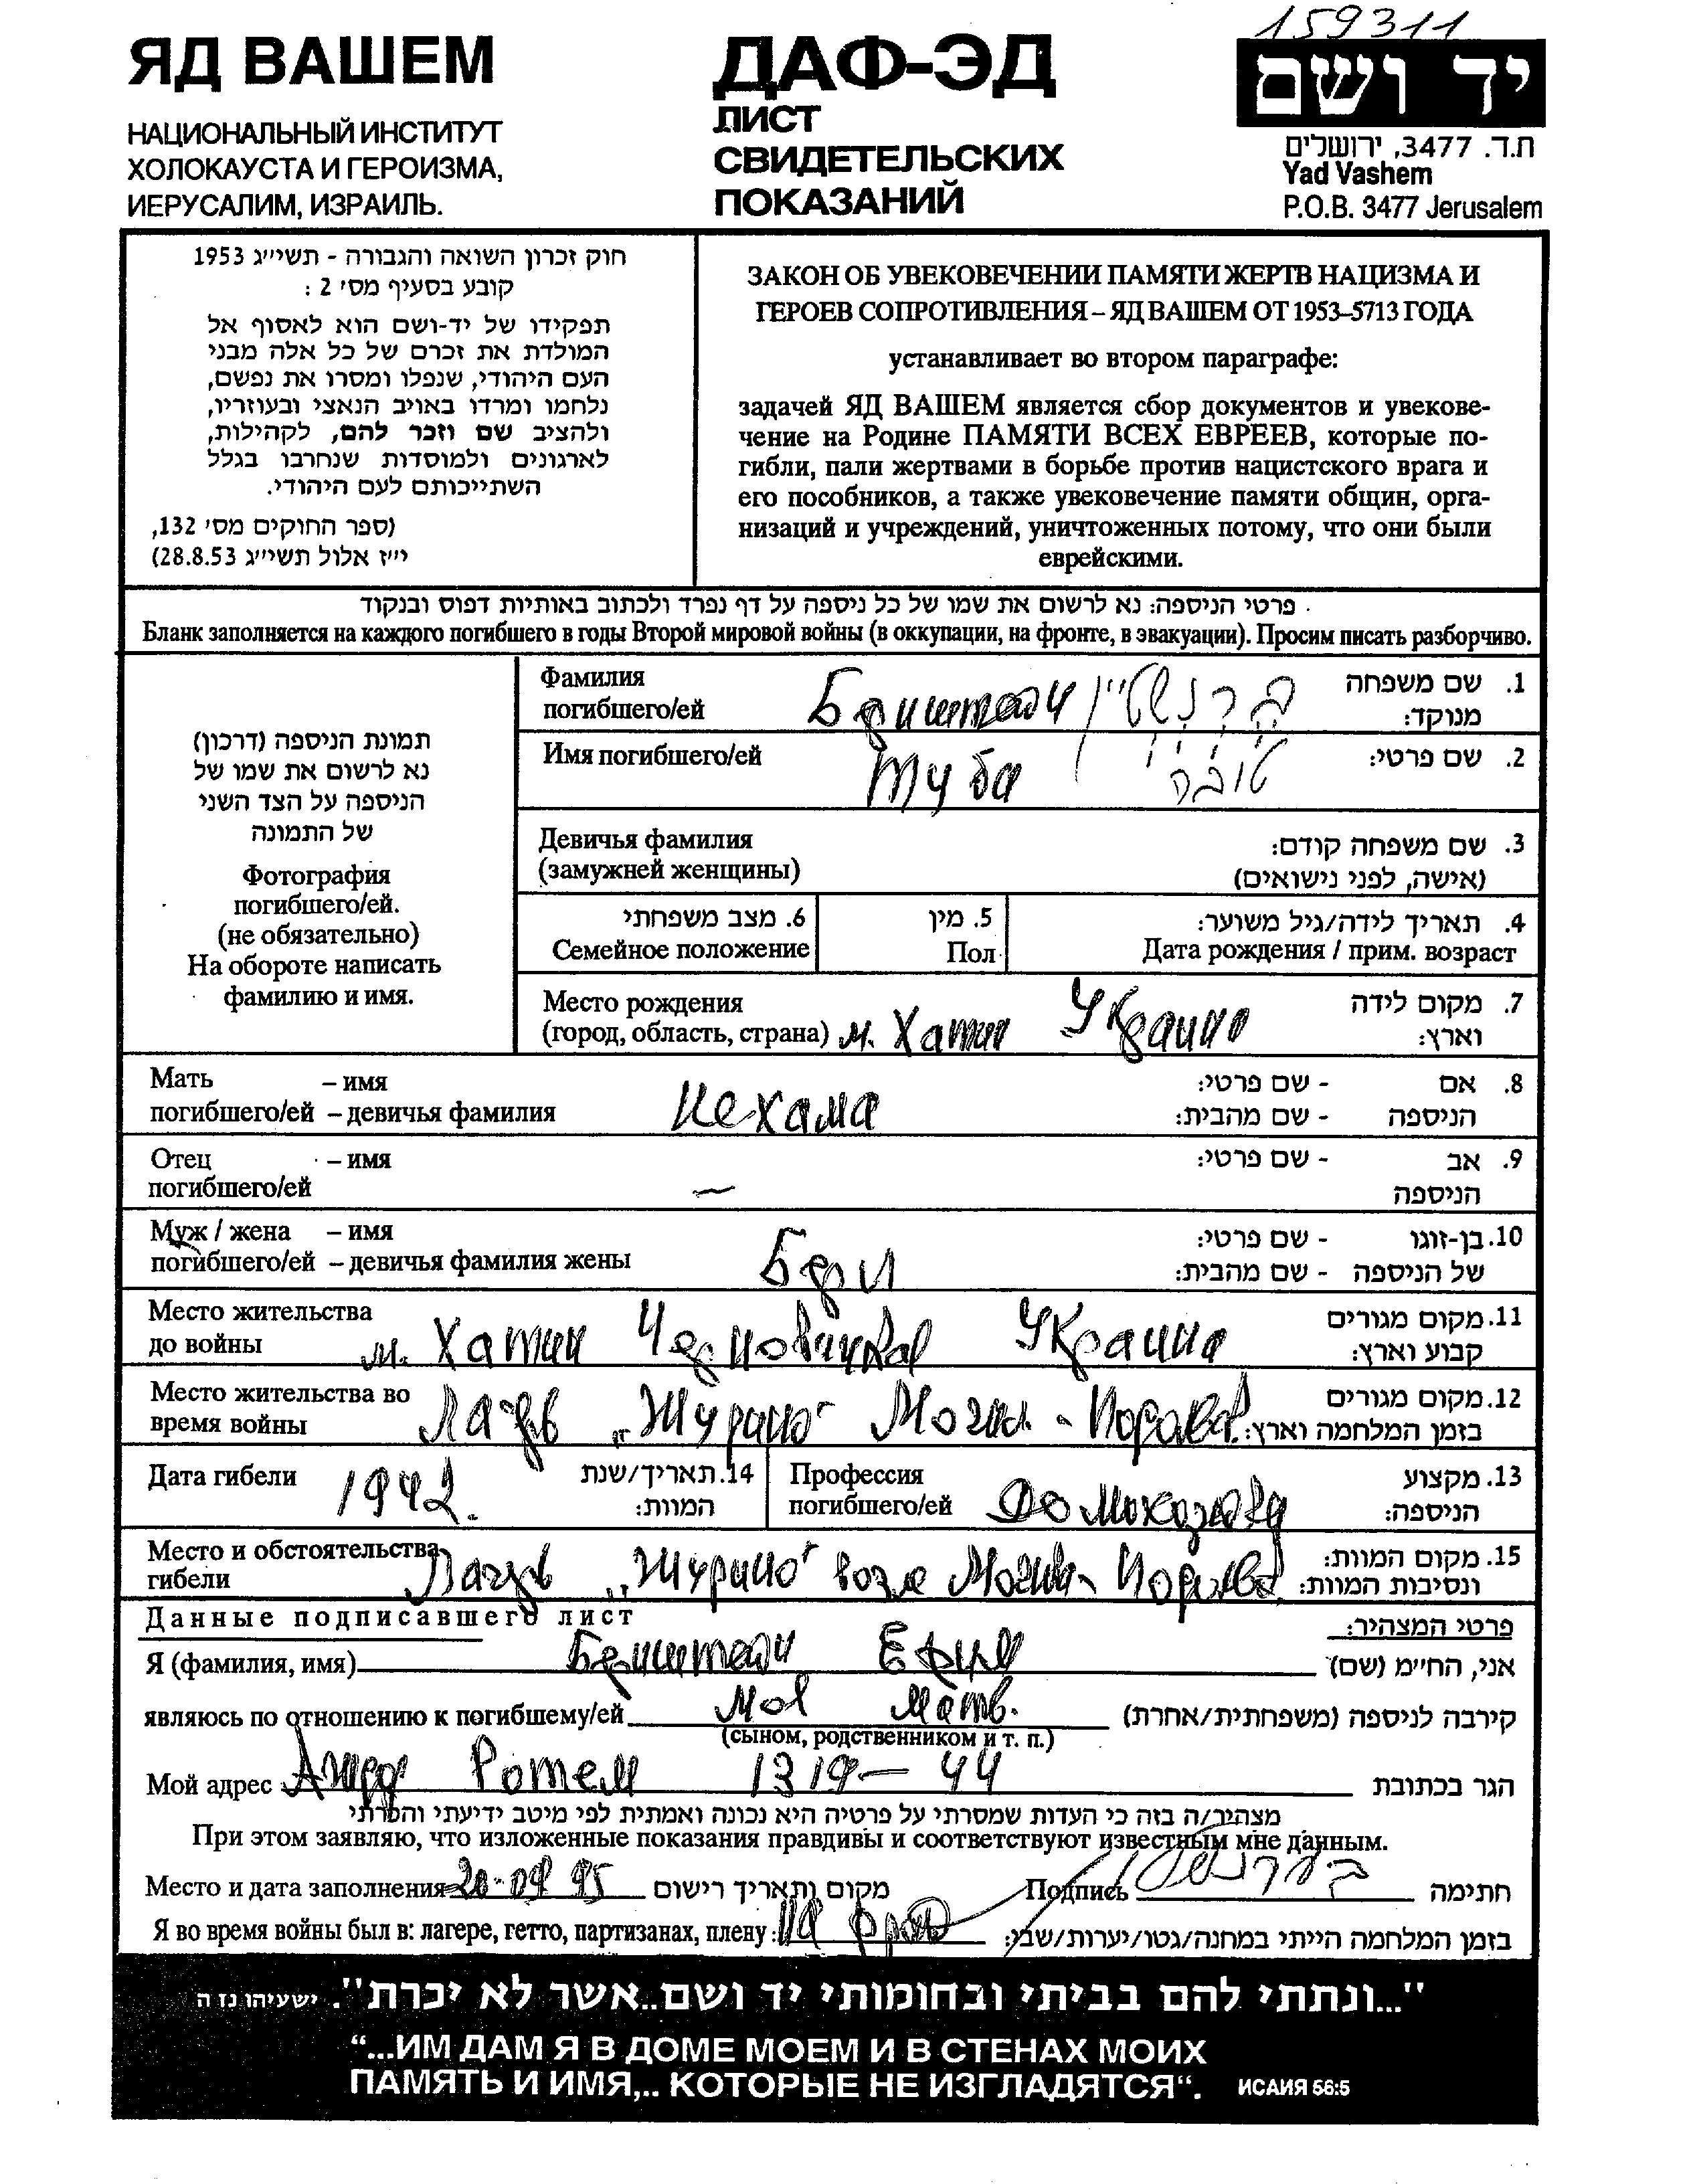 159311
ЯД ВАШЕМ
НАЦИОНАЛЬНЫЙ ИНСТИТУТ
ХОЛОКАУСТА И ГЕРОИЗМА,
ИЕРУСАЛИМ, ИЗРАИЛЬ.
ДАФ-ЭД
ЛИСТ
СВИДЕТЕЛЬСКИХ
ПОКАЗАНИЙ
יד ושם
ת.ד. 3477, ירושלים
Yad Vashem
P.O.B. 3477 Jerusalem
חוק זכרון השואה והגבורה - תשי״ג 1953
קובע בסעיף מס׳ 2 :
תפקידו של יד-ושם הוא לאסוף אל
המולדת את זכרם של כל אלה מבני
העם היהודי, שנפלו ומסרו את נפשם,
נלחמו ומרדו באויב הנאצי ובעוזריו,
ולהציב שם וזכר להם, לקהילות,
לארגונים ולמוסדות שנחרבו בגלל
השתייכותם לעם היהודי.
(ספר החוקים מס׳ 132,
י״ז אלול תשי״ג 28.8.53)
ЗАКОН ОБ УВЕКОВЕЧЕНИИ ПАМЯТИ ЖЕРТВ НАЦИЗМА И
ГЕРОЕВ СОПРОТИВЛЕНИЯ – ЯД ВАШЕМ ОТ 1953–5713 ГОДА
устанавливает во втором параграфе:
задачей ЯД ВАШЕМ является сбор документов и увекове-
чение на Родине ПАМЯТИ ВСЕХ ЕВРЕЕВ, которые по-
гибли, пали жертвами в борьбе против нацистского врага и
его пособников, а также увековечение памяти общин, орга-
низаций и учреждений, уничтоженных потому, что они были
еврейскими.
פרטי הניספה: נא לרשום את שמו של כל ניספה על דף נפרד ולכתוב באותיות דפוס ובנקוד
Бланк заполняется на каждого погибшего в годы Второй мировой войны (в оккупации, на фронте, в эвакуации). Просим писать разборчиво.
תמונת הניספה (דרכון)
נא לרשום את שמו של
הניספה על הצד השני
של התמונה
Фотография
погибшего/ей.
(не обязательно)
На обороте написать
фамилию и имя.
Фамилия
погибшего/ей
ברנשטיין
1. שם משפחה
מנוקד:
Имя погибшего/ей
Туба
טובה
2. שם פרטי:
Девичья фамилия
(замужней женщины)
3. שם משפחה קודם:
(אישה, לפני נישואים)
6. מצב משפחתי
Семейное положение
5. מין
Пол
4. תאריך לידה/גיל משוער:
Дата рождения / прим. возраст
Место рождения
(город, область, страна) м. Хатин Украина
7. מקום לידה
וארץ:
Мать – имя
погибшего/ей – девичья фамилия
Нехама
8. אם - שם פרטי:
הניספה - שם מהבית:
Отец – имя
погибшего/ей
—
9. אב - שם פרטי:
הניספה
Муж / жена – имя
погибшего/ей – девичья фамилия жены
10. בן-זוגו - שם פרטי:
של הניספה - שם מהבית:
Место жительства
до войны
м. Хатин Украина
11. מקום מגורים
קבוע וארץ:
Место жительства во
время войны
Лагерь „Журино"
12. מקום מגורים
בזמן המלחמה וארץ:
Дата гибели 1942.
14. תאריך/שנת
המוות:
Профессия
погибшего/ей Домохозяйка
13. מקצוע
הניספה:
Место и обстоятельства
гибели
Лагерь „Журино" возле
15. מקום המוות:
ונסיבות המוות:
Данные подписавшего лист
פרטי המצהיר:
Я (фамилия, имя) Ефим
אני, החי״מ (שם)
являюсь по отношению к погибшему/ей Моя мать.
קירבה לניספה (משפחתית/אחרת)
(сыном, родственником и т. п.)
Мой адрес Ротем 1319 – 44
הגר בכתובת
מצהיר/ה בזה כי העדות שמסרתי על פרטיה היא נכונה ואמתית לפי מיטב ידיעתי והכרתי
При этом заявляю, что изложенные показания правдивы и соответствуют известным мне данным.
Место и дата заполнения 95
מקום ותאריך רישום
Подпись
חתימה
Я во время войны был в: лагере, гетто, партизанах, плену:
בזמן המלחמה הייתי במחנה/גטו/יערות/שבי:
"...ונתתי להם בביתי ובחומותי יד ושם..אשר לא יכרת". ישעיהו נו ה
“...ИМ ДАМ Я В ДОМЕ МОЕМ И В СТЕНАХ МОИХ
ПАМЯТЬ И ИМЯ,.. КОТОРЫЕ НЕ ИЗГЛАДЯТСЯ“. ИСАИЯ 56:5